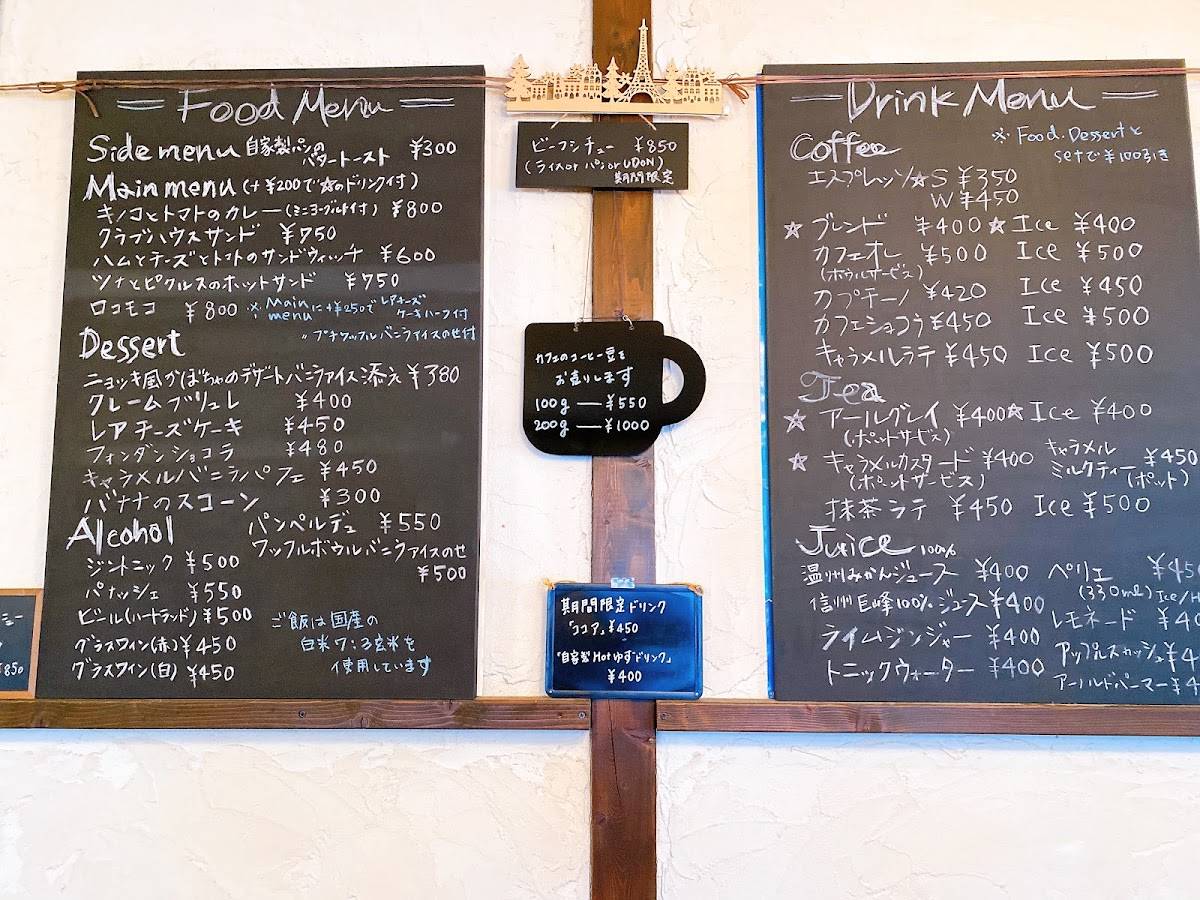 Food Menu
Side menu 自家製パンの バタートースト ¥300
Main menu (+¥200で☆のドリンク付)
キノコとトマトのカレー(ミニヨーグルト付) ¥800
クラブハウスサンド ¥750
ハムとチーズとトマトのサンドウィッチ ¥600
ツナとピクルスのホットサンド ¥750
ロコモコ ¥800 ※Main menuに+¥250で レアチーズケーキハーフ付
〃 プチワッフルバニラアイスのせ付
Dessert
ニョッキ風かぼちゃのデザートバニラアイス添え ¥380
クレームブリュレ ¥400
レアチーズケーキ ¥450
フォンダンショコラ ¥480
キャラメルバニラパフェ ¥450
バナナのスコーン ¥300
パンペルデュ ¥550
ワッフルボウルバニラアイスのせ
¥500
Alcohol
ジントニック ¥500
パナッシェ ¥550
ビール(ハートランド) ¥500
グラスワイン(赤) ¥450
グラスワイン(白) ¥450
ご飯は国産の
白米7:3玄米を
使用しています
ビーフシチュー ¥850
(ライス or パン or UDON)
期間限定
カフェのコーヒー豆を
お売りします
100g — ¥550
200g — ¥1000
期間限定ドリンク
「ココア」¥450
「自家製Hotゆずドリンク」
¥400
Drink Menu
※Food.Dessertと
setで¥100引き
Coffee
エスプレッソ☆S ¥350
W ¥450
☆ブレンド ¥400 ☆Ice ¥400
カフェオレ ¥500 Ice ¥500
(ボウルサービス)
カプチーノ ¥420 Ice ¥450
カフェショコラ ¥450 Ice ¥500
キャラメルラテ ¥450 Ice ¥500
Tea
☆アールグレイ ¥400 ☆Ice ¥400
(ポットサービス)
☆キャラメルカスタード ¥400
(ポットサービス)
キャラメル
ミルクティー ¥450
(ポット)
抹茶ラテ ¥450 Ice ¥500
Juice 100%
温州みかんジュース ¥400
信州巨峰100%ジュース ¥400
ライムジンジャー ¥400
トニックウォーター ¥400
ペリエ ¥450
(330ml)
レモネード
Ice/H
アップルスカッシュ
アーノルドパーマー
¥850